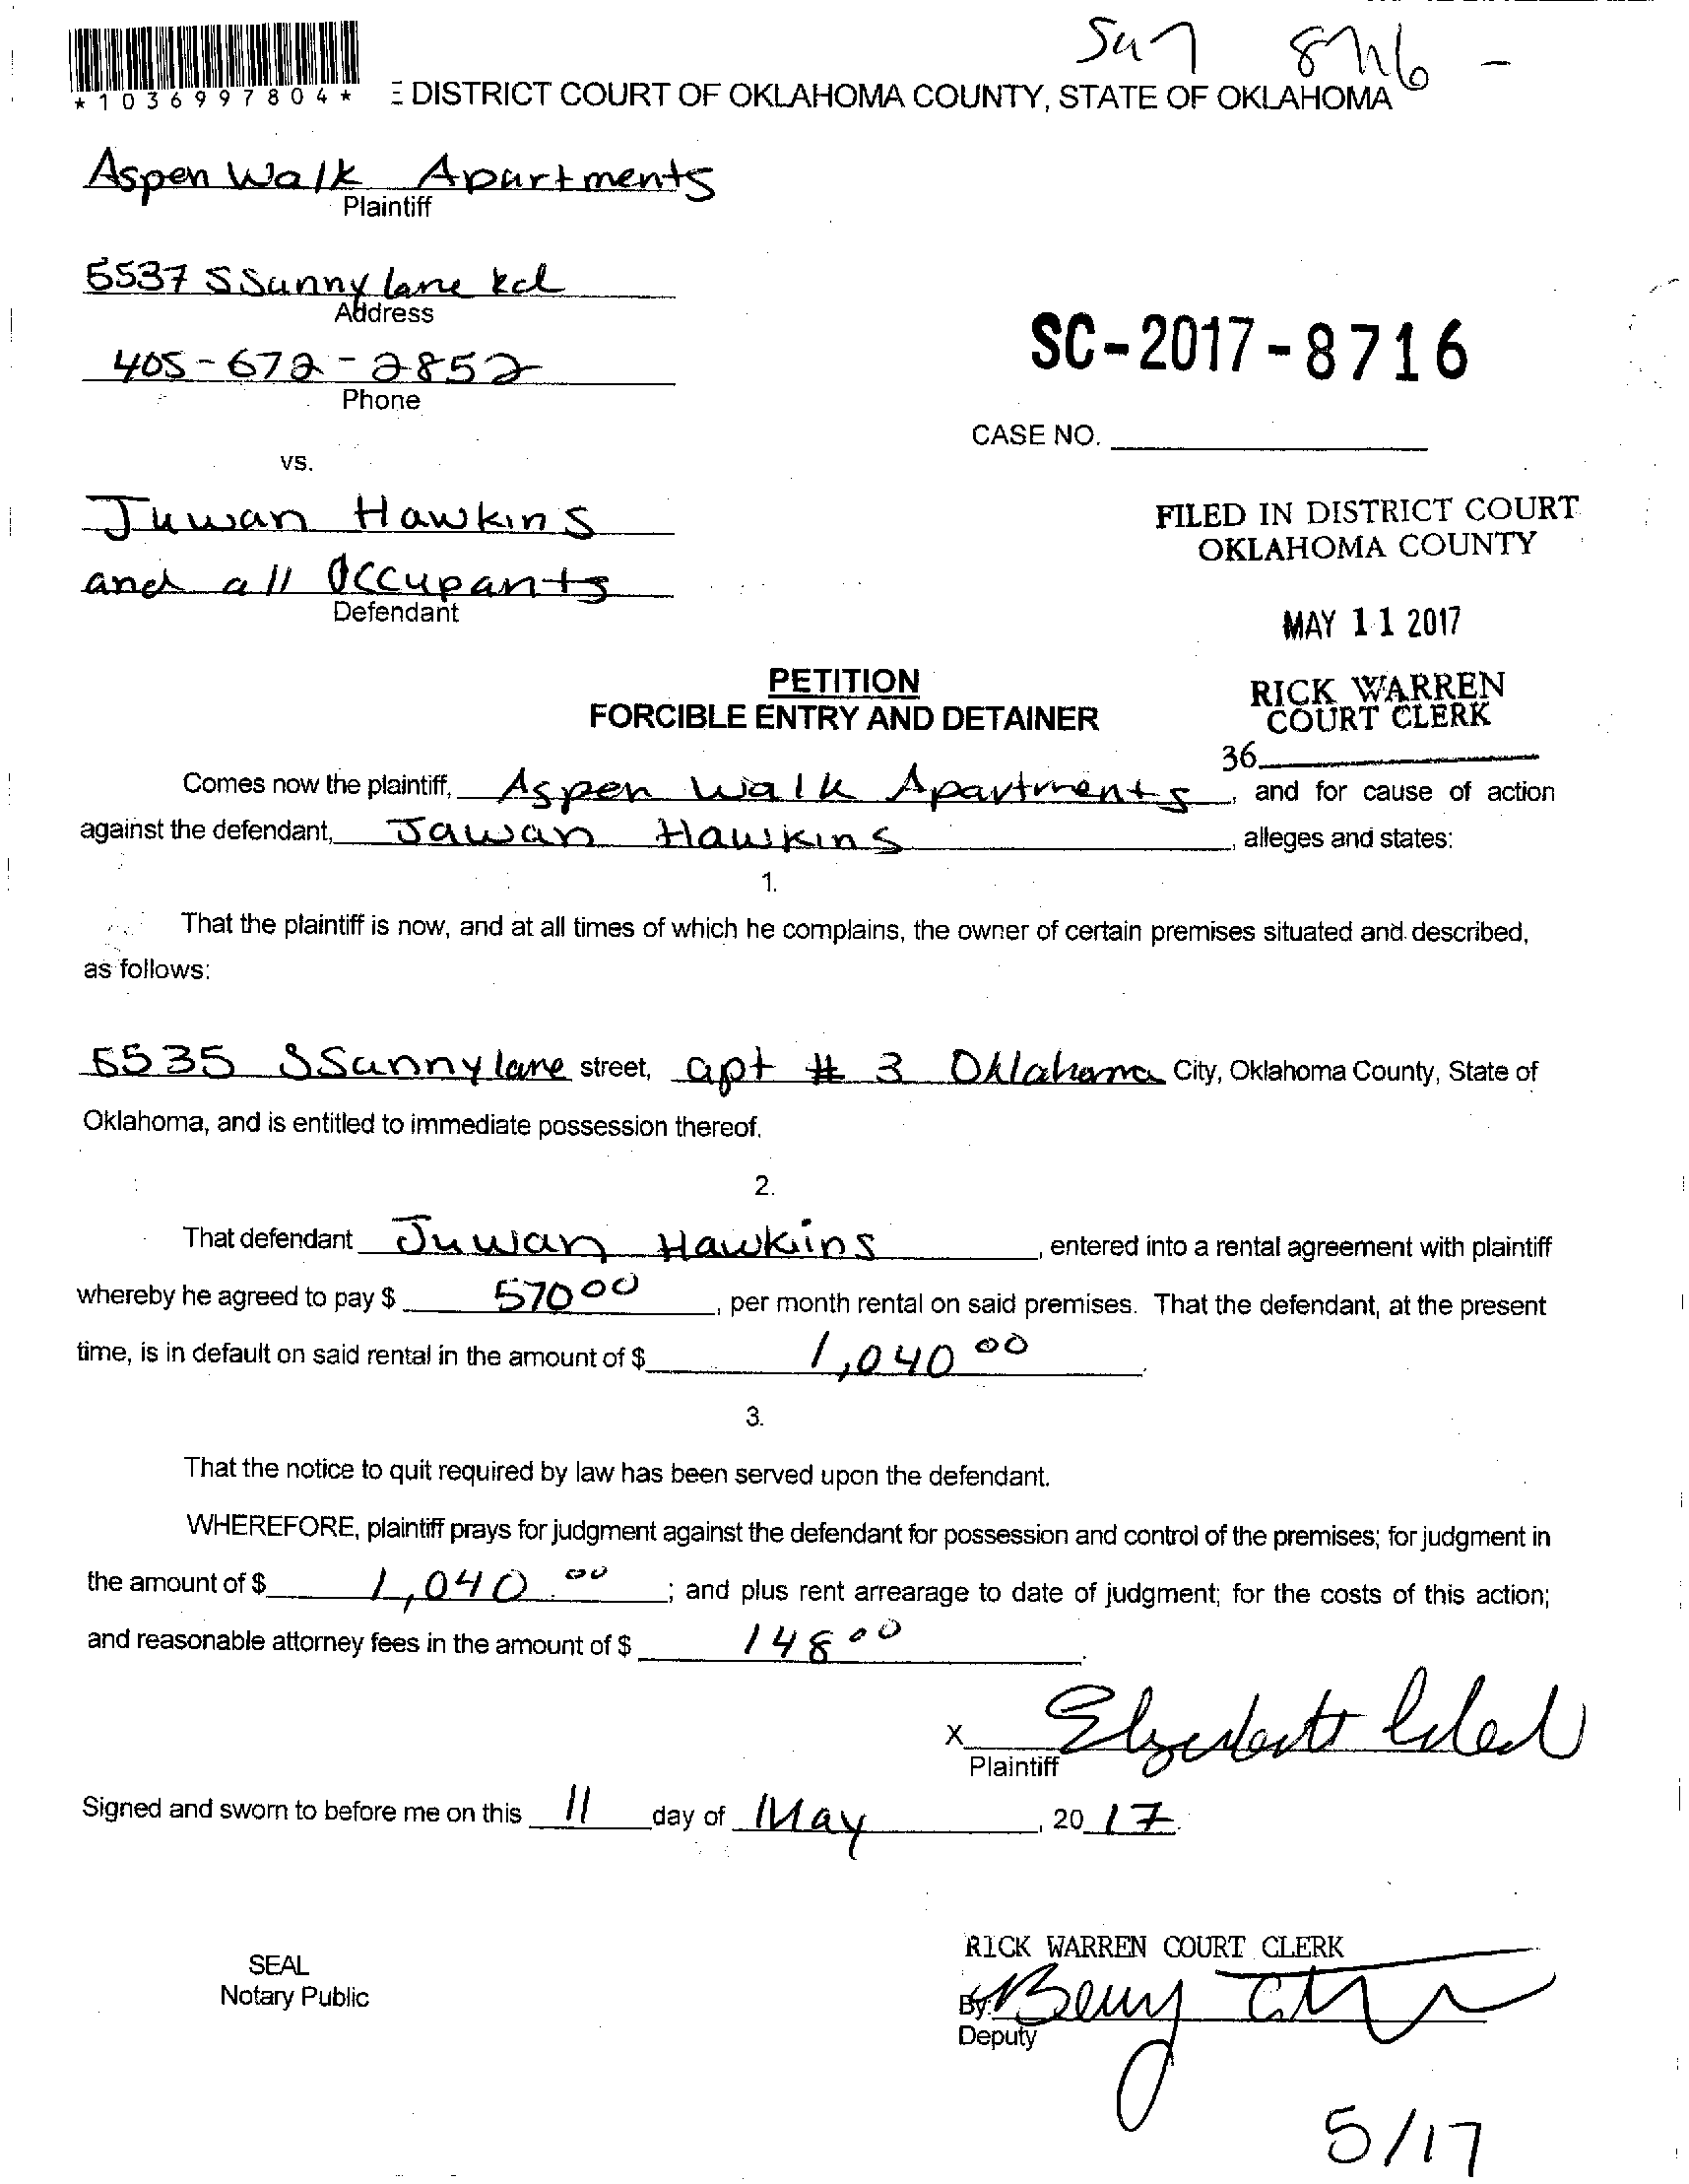 *1036997804* E DISTRICT COURT OF OKLAHOMA COUNTY, STATE OF OKLAHOMA
Aspen Walk Apartments
Plaintiff
5537 S Sunnylane Rd
Address
405-672-2852
Phone
SC-2017-8716
CASE NO.
vs.
Juwan Hawkins
and all Occupants
Defendant
FILED IN DISTRICT COURT
OKLAHOMA COUNTY
MAY 11 2017
RICK WARREN
COURT CLERK
36
PETITION
FORCIBLE ENTRY AND DETAINER
Comes now the plaintiff, Aspen Walk Apartments, and for cause of action
against the defendant, Jawan Hawkins, alleges and states:
1.
That the plaintiff is now, and at all times of which he complains, the owner of certain premises situated and described,
as follows:
5535 S Sunnylane street, apt # 3 Oklahoma City, Oklahoma County, State of
Oklahoma, and is entitled to immediate possession thereof.
2.
That defendant Juwan Hawkins, entered into a rental agreement with plaintiff
whereby he agreed to pay $ 570 00, per month rental on said premises. That the defendant, at the present
time, is in default on said rental in the amount of $ 1,040 00.
3.
That the notice to quit required by law has been served upon the defendant.
WHEREFORE, plaintiff prays for judgment against the defendant for possession and control of the premises; for judgment in
the amount of $ 1,040.00; and plus rent arrearage to date of judgment; for the costs of this action;
and reasonable attorney fees in the amount of $ 148 00.
X
Plaintiff
Signed and sworn to before me on this 11 day of May, 20 17.
SEAL
Notary Public
RICK WARREN COURT CLERK
By:
Deputy
5/17